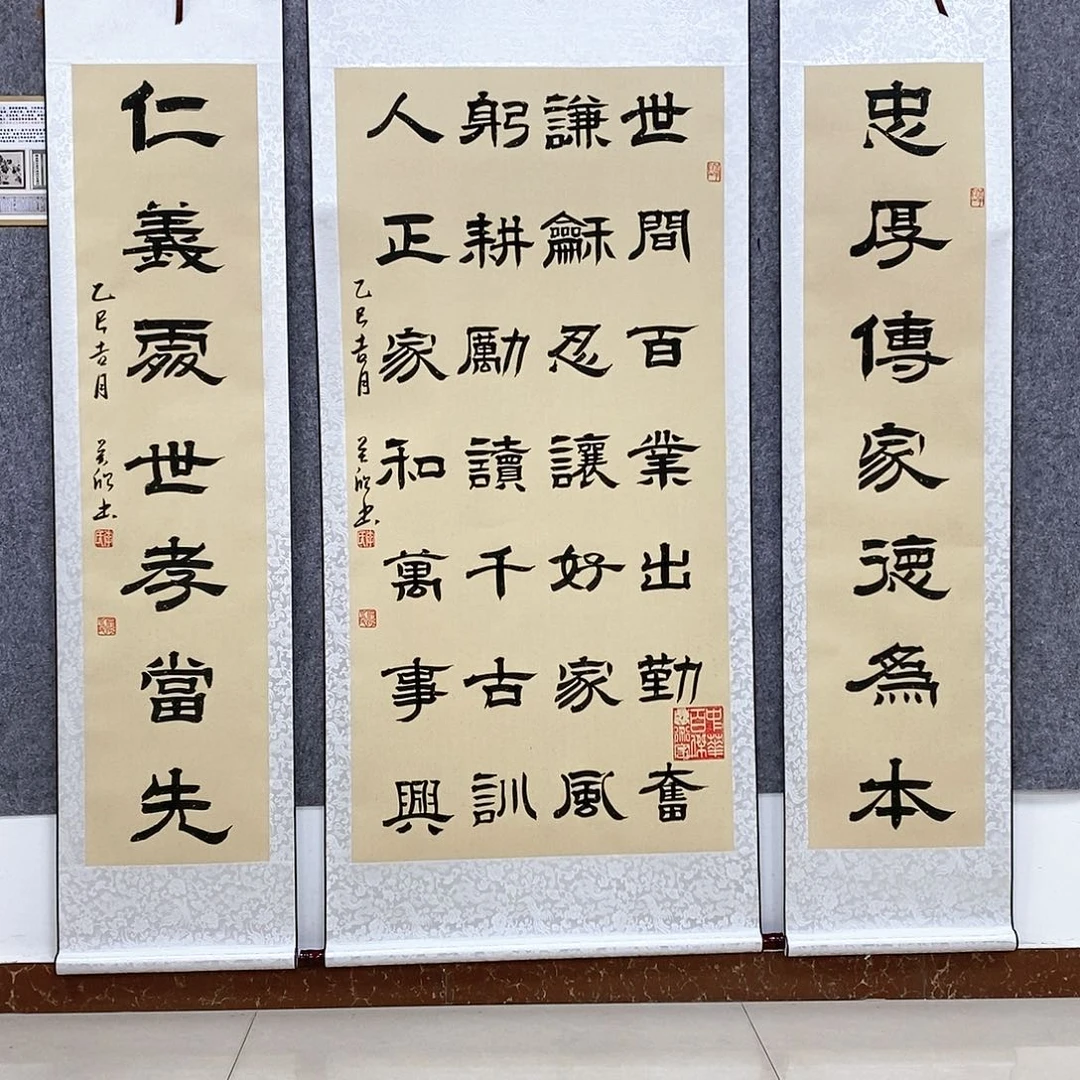 忠厚傳家德爲本
世間百業出勤奮
謙龢忍讓好家風
躬耕勵讀千古訓
人正家和萬事興
乙巳吉月
仁義處世孝當先
乙巳吉月
中華百傑